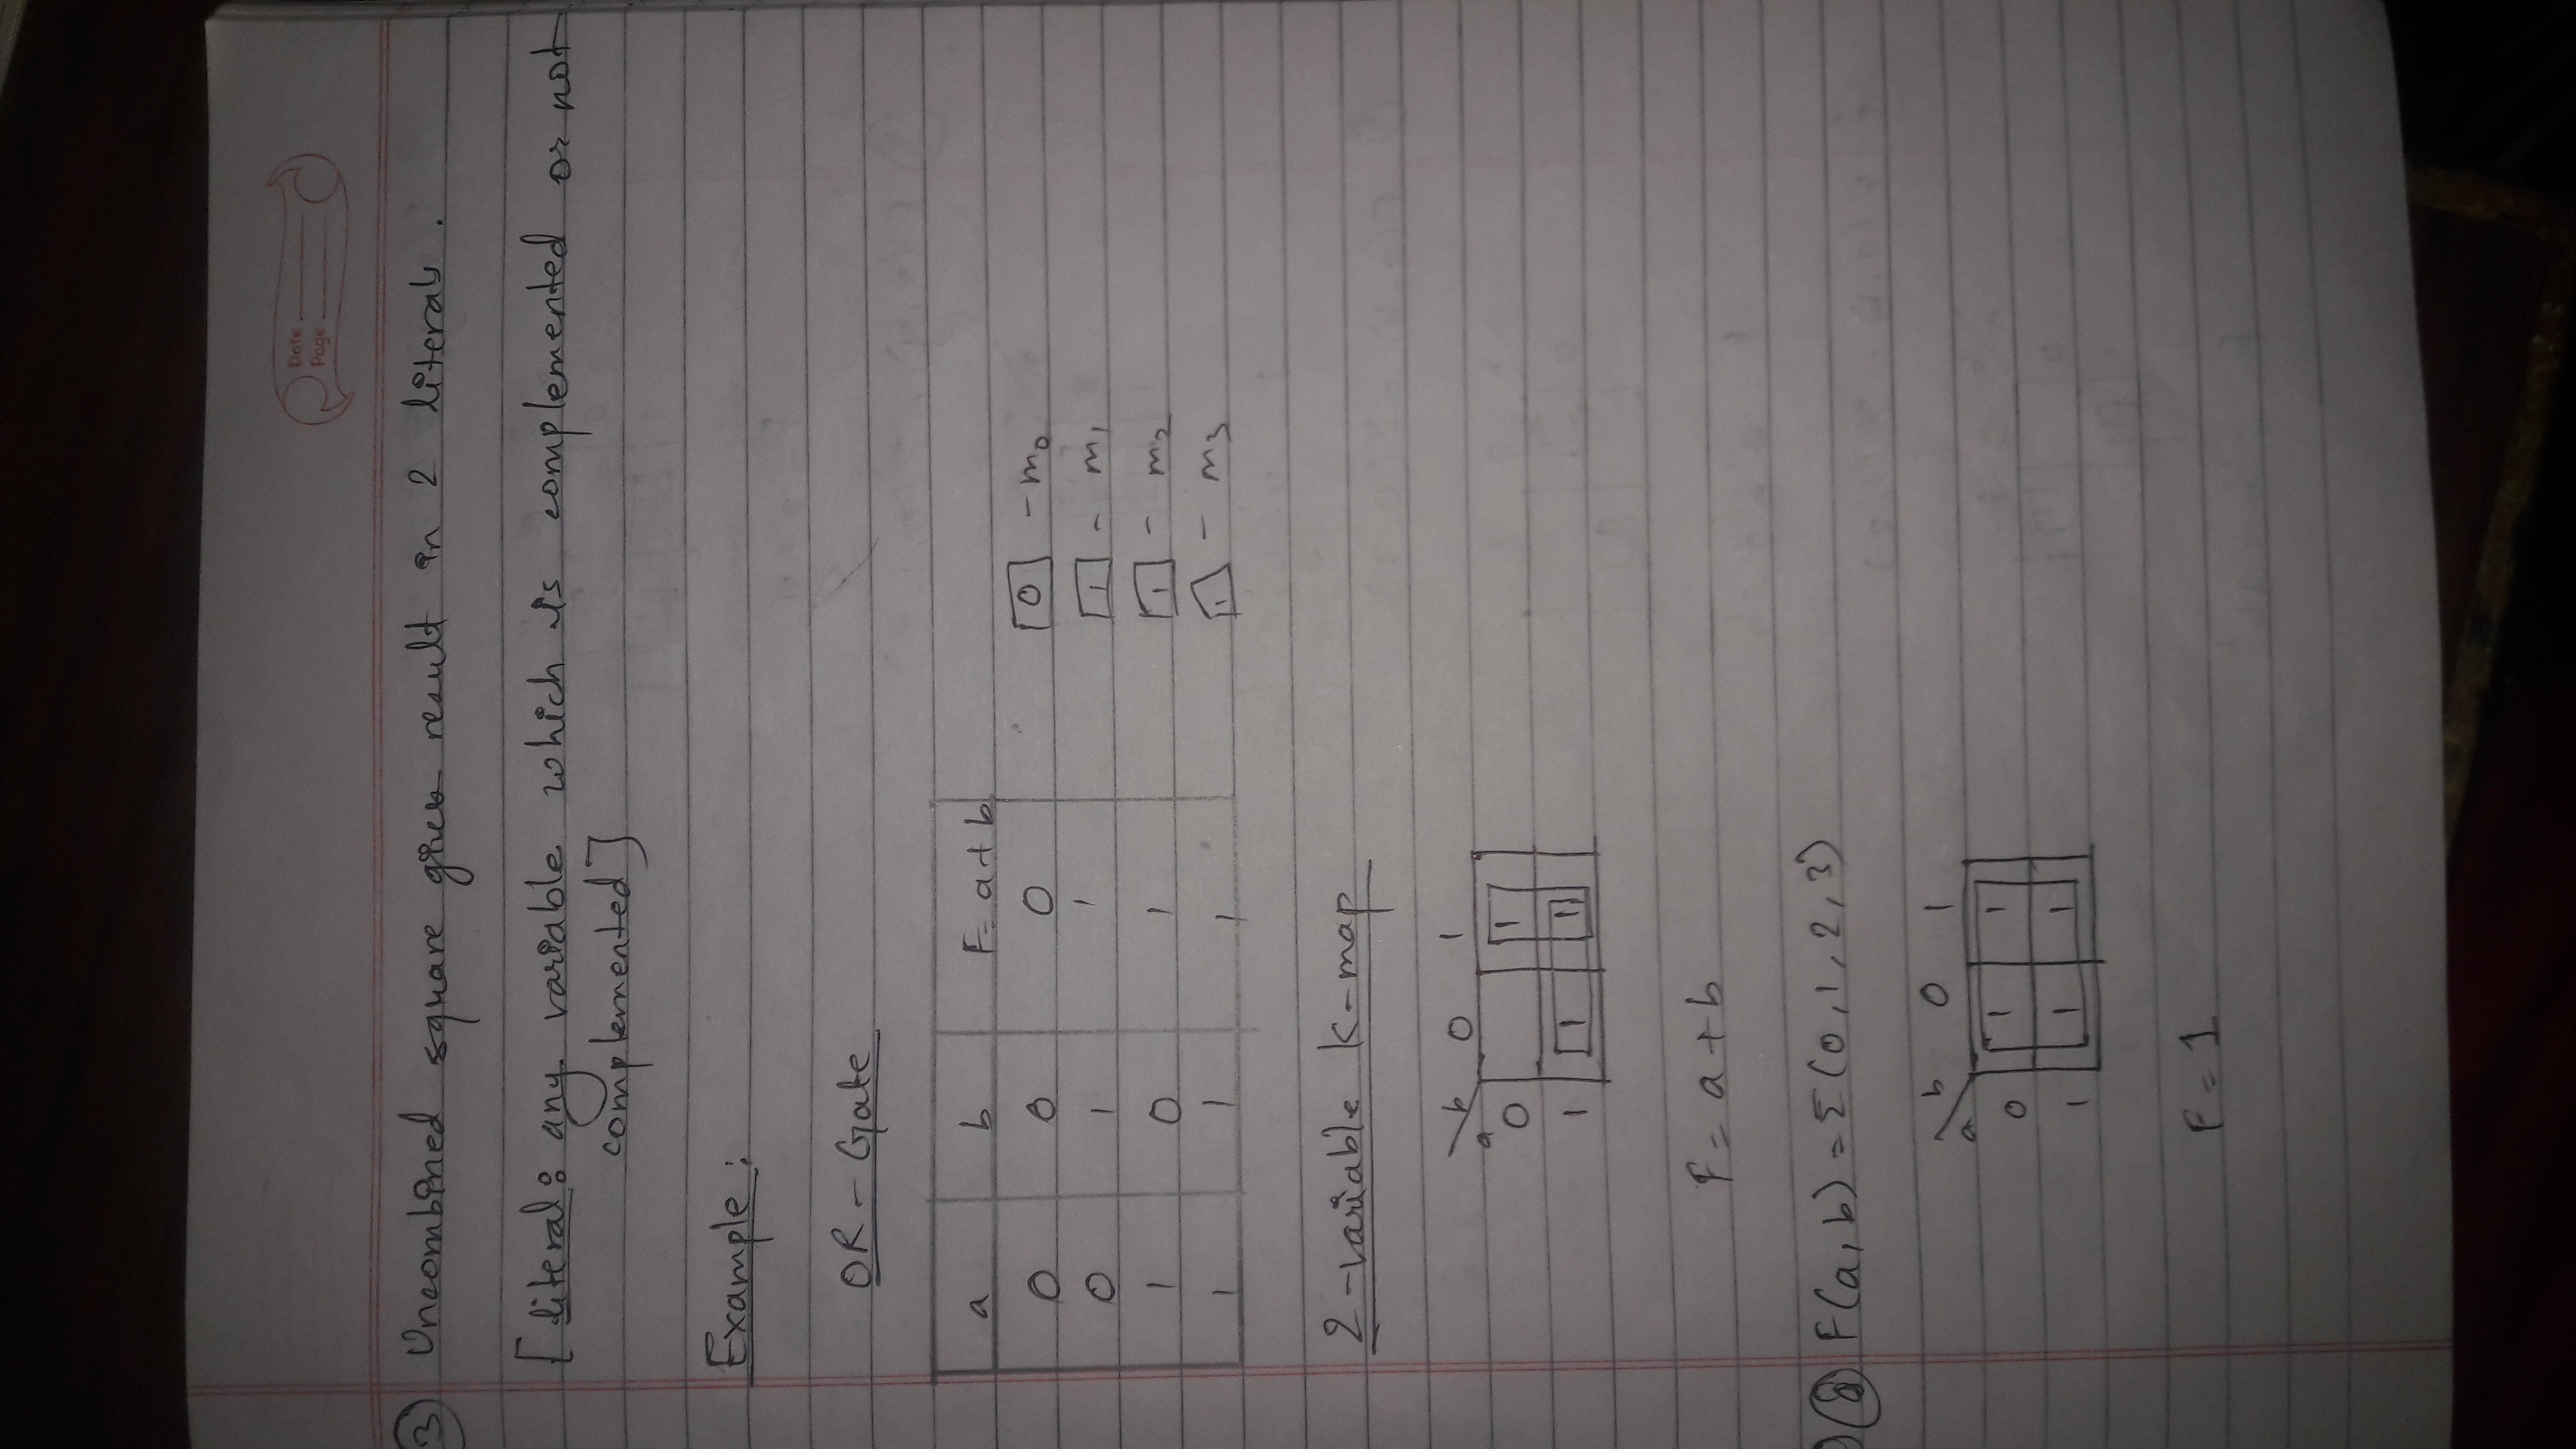 Date
Page
3 Uncombined square gives result in 2 literals.
[literal: any variable which is complemented or not
complemented]
Example:
OR - Gate
a b F = a + b
0 0 0 0 - m0
0 1 1 1 - m1
1 0 1 1 - m2
1 1 1 1 - m3
2-variable K-map
b 0 1
a
0 1
1 1 1
F = a + b
F(a, b) = Σ(0, 1, 2, 3)
b 0 1
a
0 1 1
1 1 1
F = 1